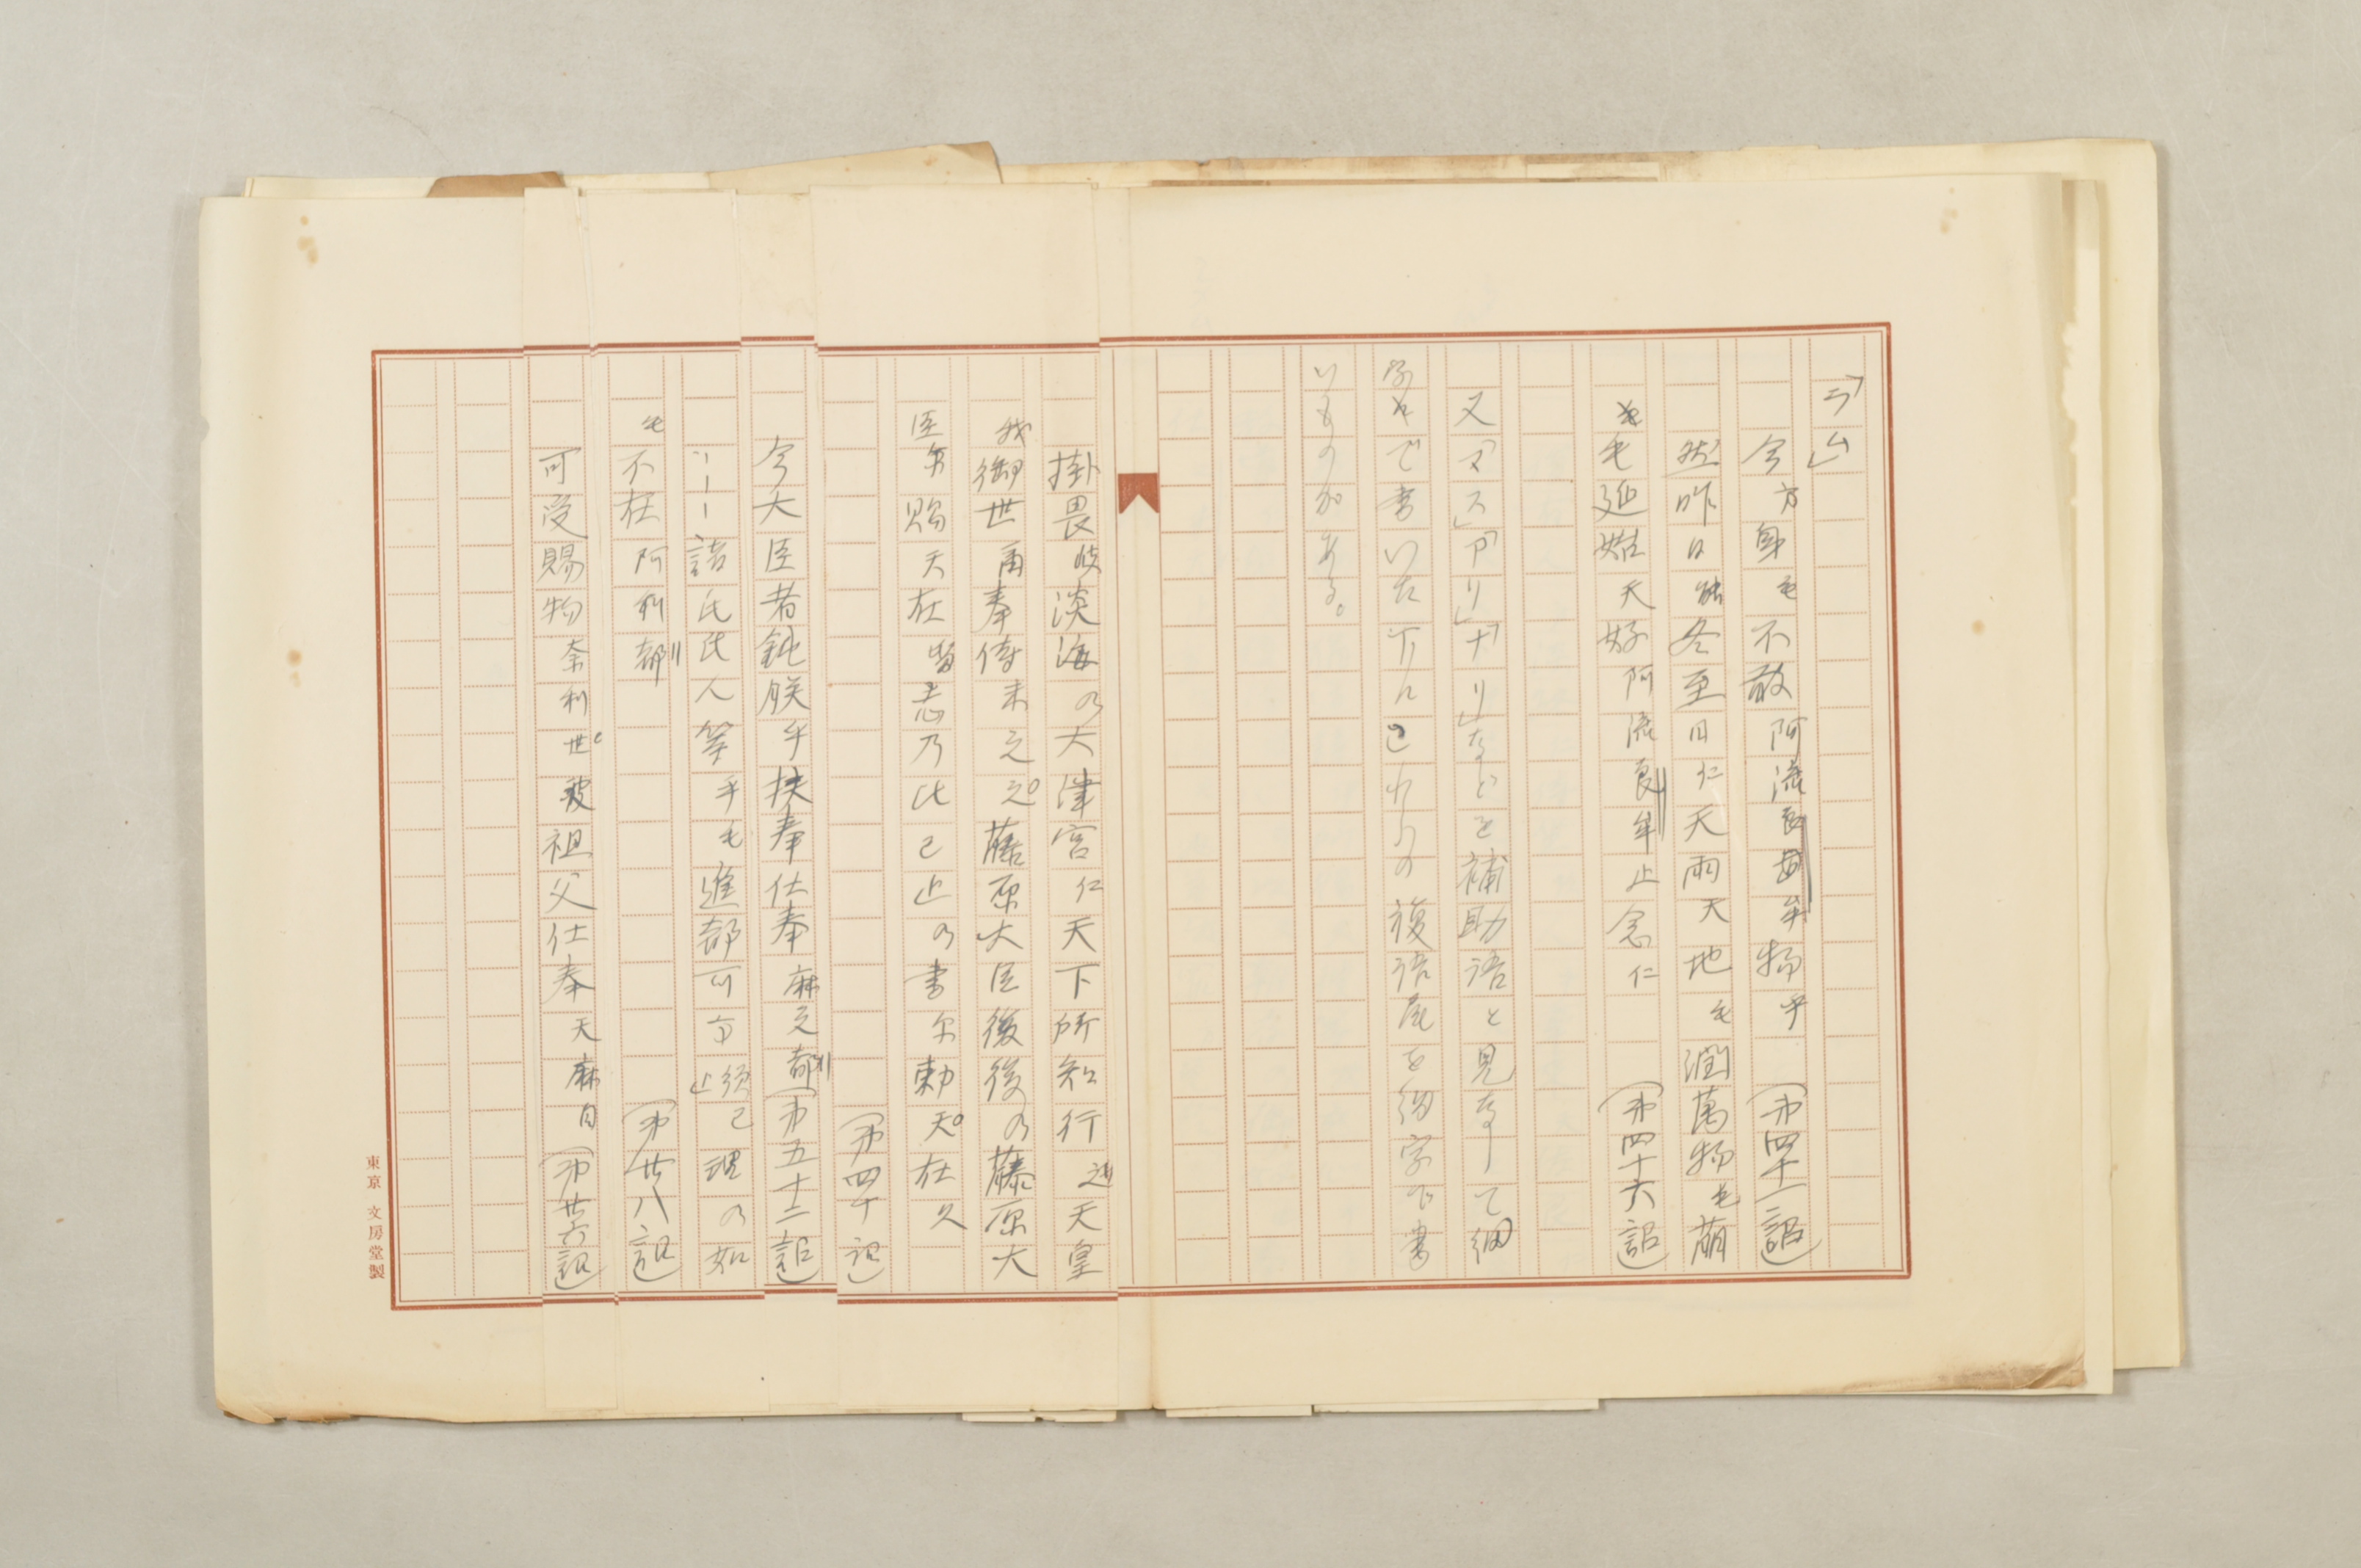 「ラム」
今方身毛不敢阿流良牟物乎（第四十一詔）
然昨日能冬至日仁天雨天地毛潤萬物毛萌
毛延始天好阿流良牟止念仁（第四十六詔）
又「マス」「アリ」「ナリ」などを補助語と見なして細
字で書いた下にこれらの複語尾を細字で書
いものがある。
掛畏岐淡海乃大津宮仁天下所知行之天皇
我御世尓奉侍末之之藤原大臣後後乃藤原大
臣尓賜天在留志乃比己止乃書尓勅天在久
（第四十詔）
今大臣者鈍朕乎扶奉仕奉麻之都（第五十二詔）
諸氏氏人等乎毛進都可方須己止理乃如
毛不在阿利都（第廿八詔）
可受賜物奈利世波祖父仕奉天麻自（第廿六詔）
東京 文房堂製